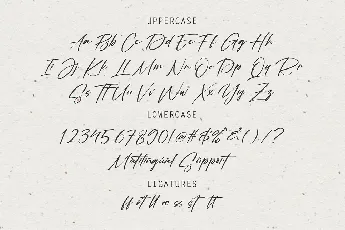 UPPERCASE
Aa Bb Cc Dd Ee Ff Gg Hh
Ii Jj Kk Ll Mm Nn Oo Pp Qq Rr
Ss Tt Uu Vv Ww Xx Yy Zz
LOWERCASE
1234567890!@#$%&()/?
Multilingual Support
LIGATURES
ll tt